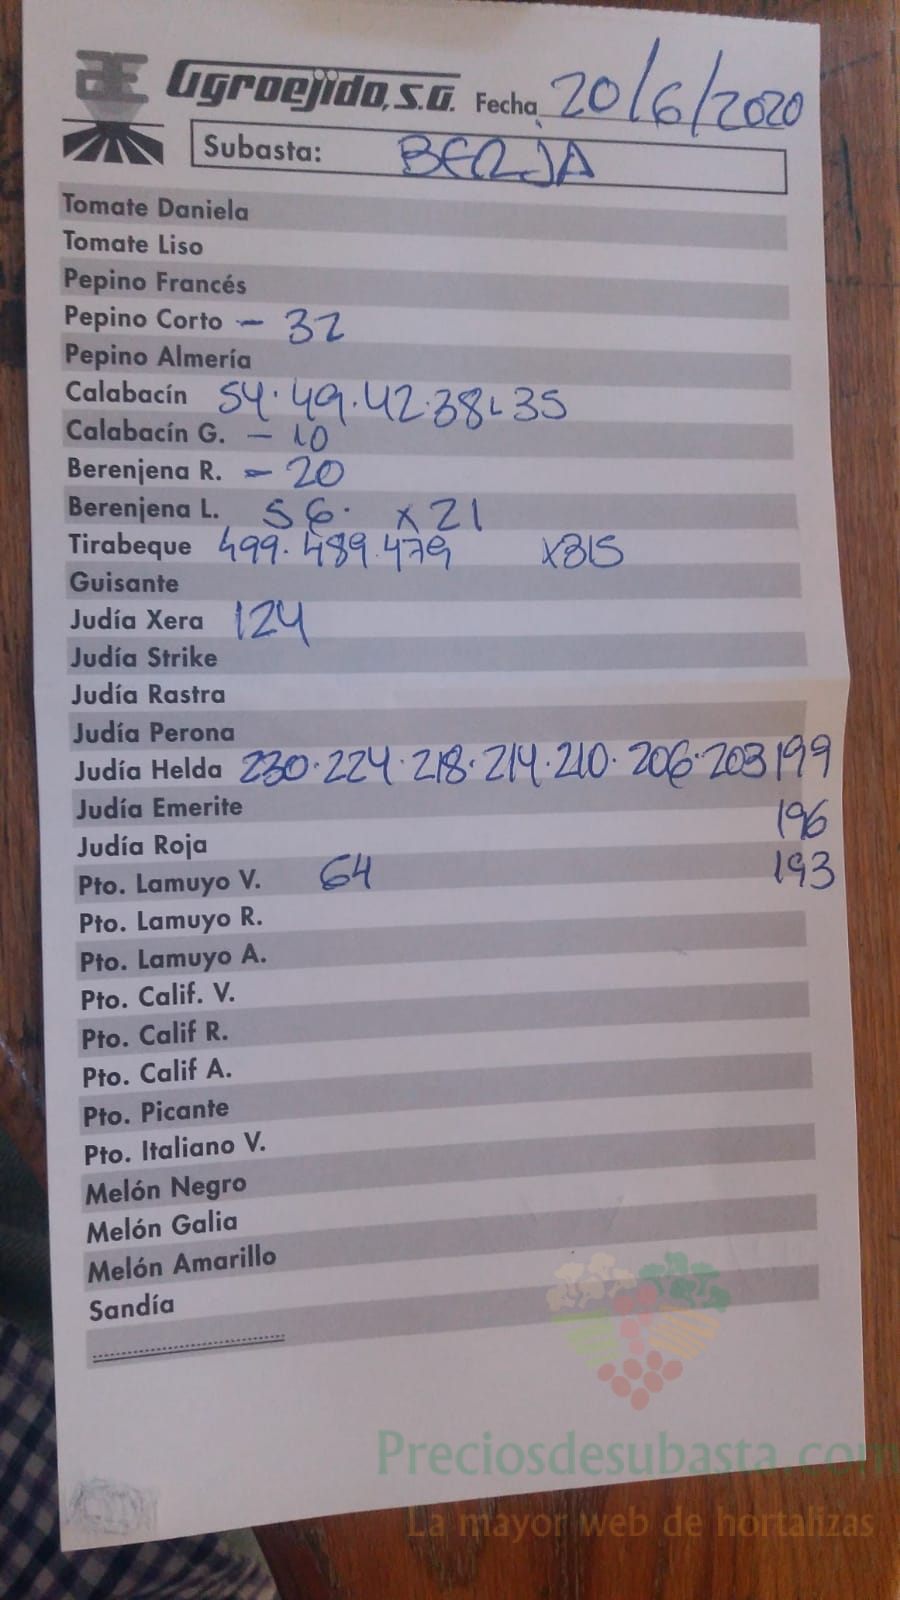 Agroejido, S.A. Fecha 20/6/2020
Subasta: BERJA
Tomate Daniela
Tomate Liso
Pepino Francés
Pepino Corto - 32
Pepino Almería
Calabacín 54. 49. 42. 38. 35
Calabacín G. - 10
Berenjena R. - 20
Berenjena L. 56. x21
Tirabeque 499. 489. 479 x315
Guisante
Judía Xera 124
Judía Strike
Judía Rastra
Judía Perona
Judía Helda 230. 224. 218. 214. 210. 206. 203 199
Judía Emerite 196
Judía Roja
Pto. Lamuyo V. 64 193
Pto. Lamuyo R.
Pto. Lamuyo A.
Pto. Calif. V.
Pto. Calif R.
Pto. Calif A.
Pto. Picante
Pto. Italiano V.
Melón Negro
Melón Galia
Melón Amarillo
Sandía
Preciosdesubasta.com
La mayor web de hortalizas